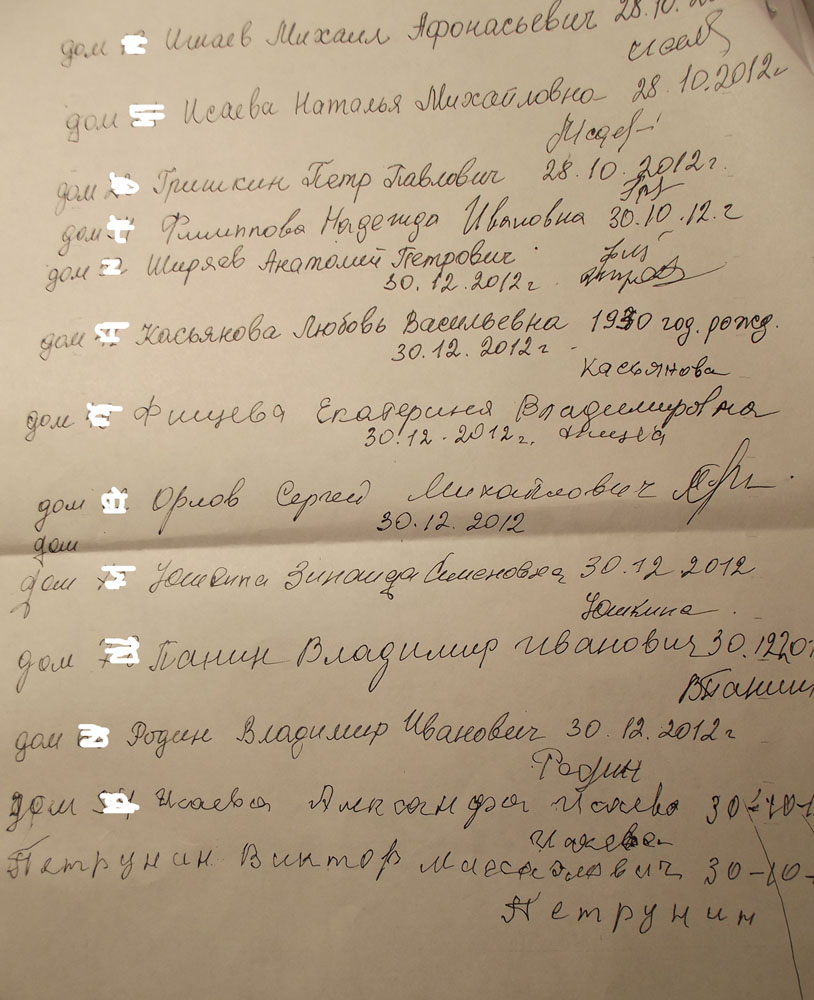 дом Ишаев Михаил Афонасьевич 28.10.
дом Исаева Наталья Михайловна 28.10.2012г
дом Гришкин Петр Павлович 28.10.2012г.
дом Филиппова Надежда Ивановна 30.10.12.г
дом Ширяев Анатолий Петрович
30.12.2012г.
дом Касьянова Любовь Васильевна 1930 год. рожд.
30.12.2012г
Касьянова
дом Фищева Екатерина Владимировна
30.12.2012г.
дом Орлов Сергей Михайлович
30.12.2012
дом
дом Зинаида Семеновна 30.12 2012
Юшкина
дом Панин Владимир Иванович 30.12.20
ВПанин
дом Родин Владимир Иванович 30.12.2012г
Родин
дом Исаева 30-10-
Петрунин Виктор 30-10-
Петрунин